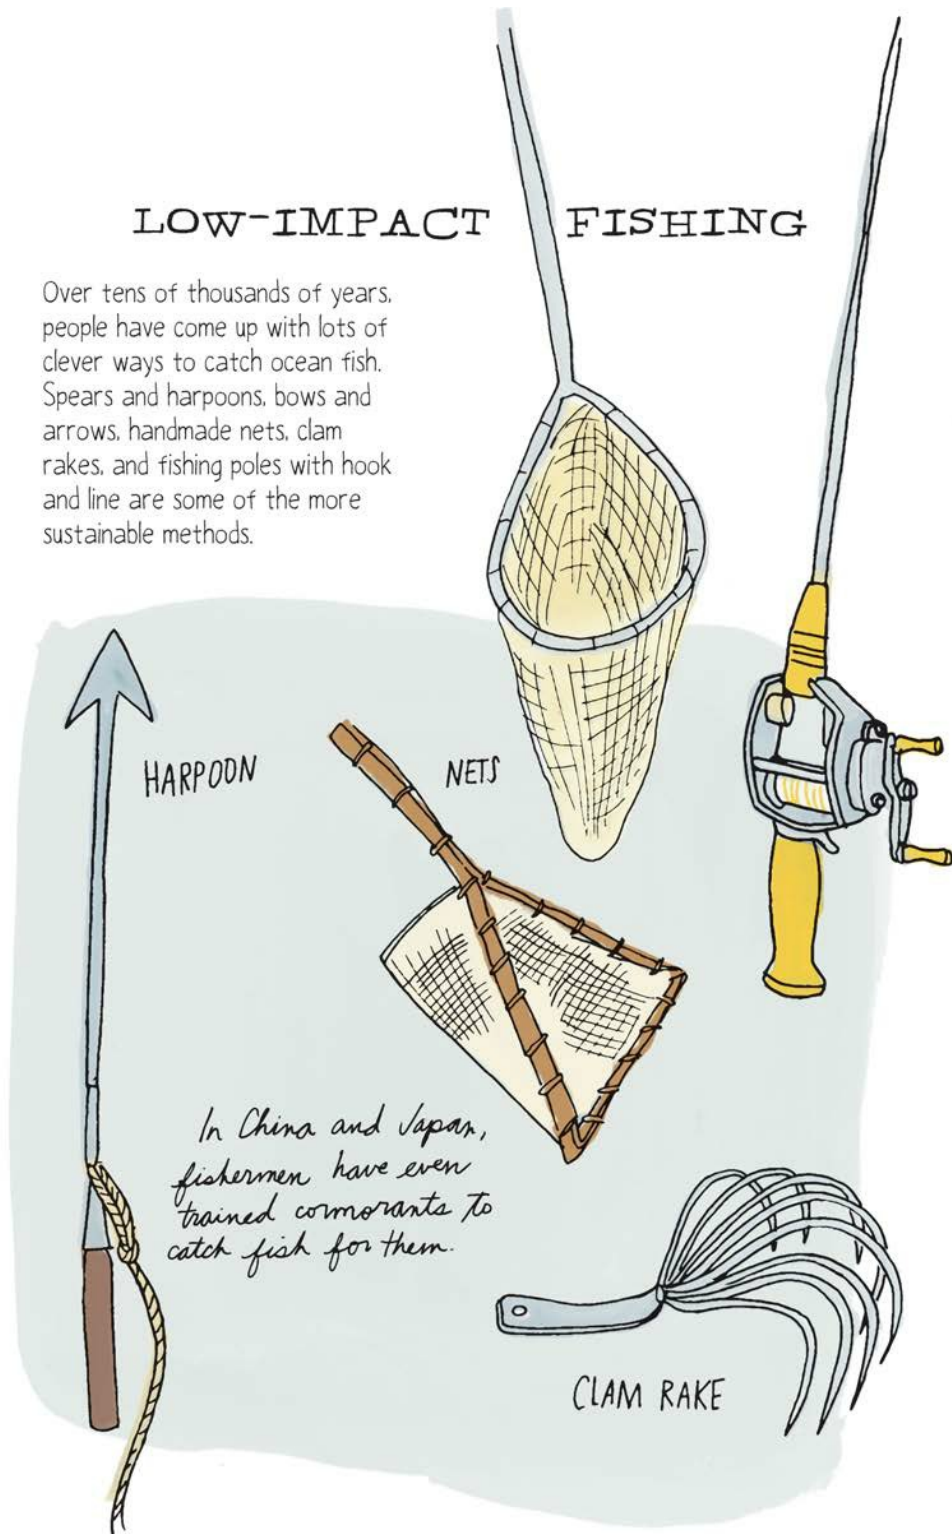 LOW-IMPACT FISHING
Over tens of thousands of years,
people have come up with lots of
clever ways to catch ocean fish.
Spears and harpoons, bows and
arrows, handmade nets, clam
rakes, and fishing poles with hook
and line are some of the more
sustainable methods.
HARPOON
NETS
In China and Japan,
fishermen have even
trained cormorants to
catch fish for them.
CLAM RAKE